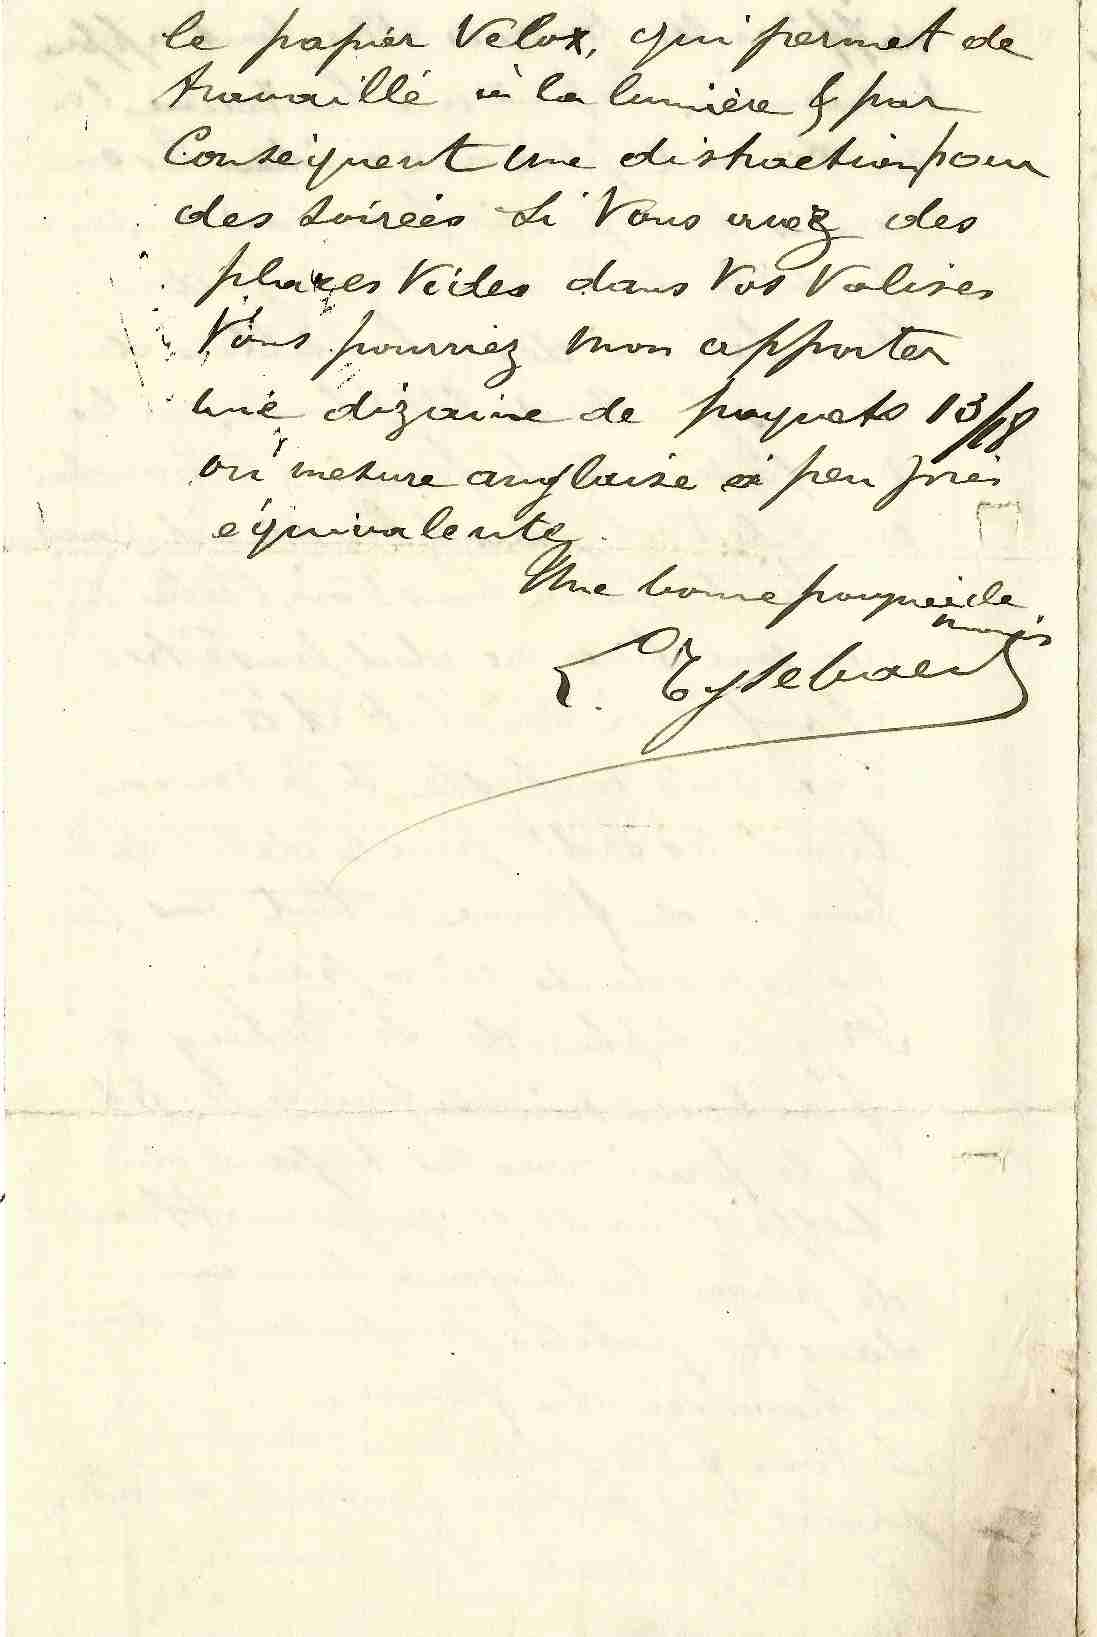 le papier Velox, qui permet de
travaillé à la lumière & par
Conséquent une distraction pour
des soirées Si Vous avez des
places Vides dans Vos Valises
Vous pourriez mon apporter
une dizaine de paquets 13/18
ou mesure anglaise à peu près
équivalente.
Une bonne poignée de
mains